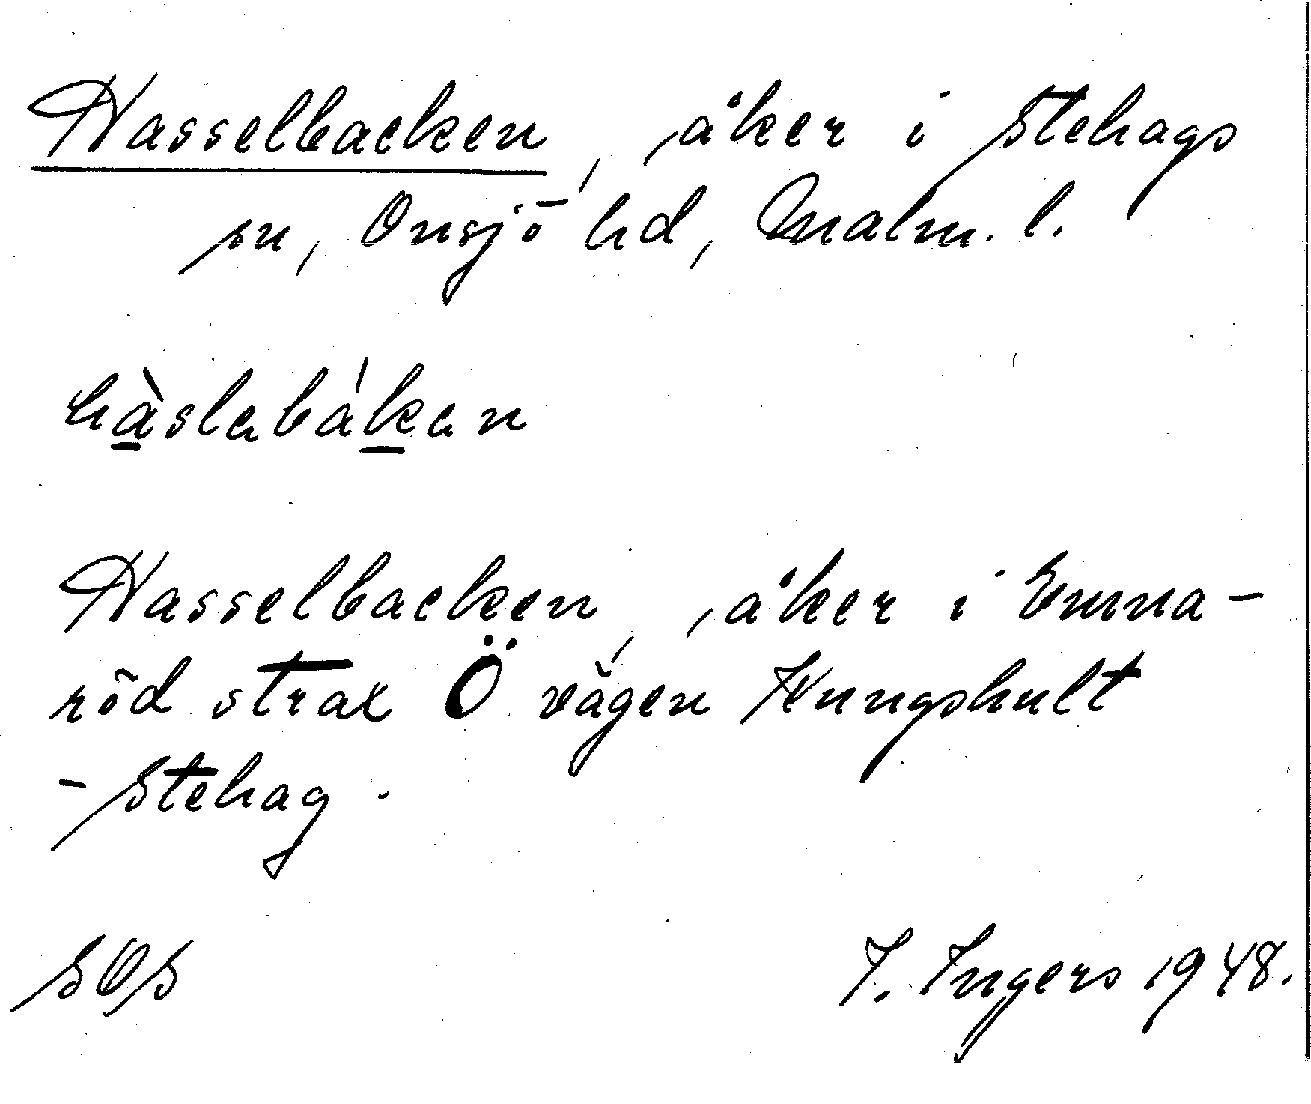 Hasselbacken, åker i Stehags
sn, Onsjö hd, Malm. l.
hàslabákan
Hasselbacken, åker i Emma-
röd strax Ö vägen Kungshult
- Stehag.
SOS I. Ingers 1948.